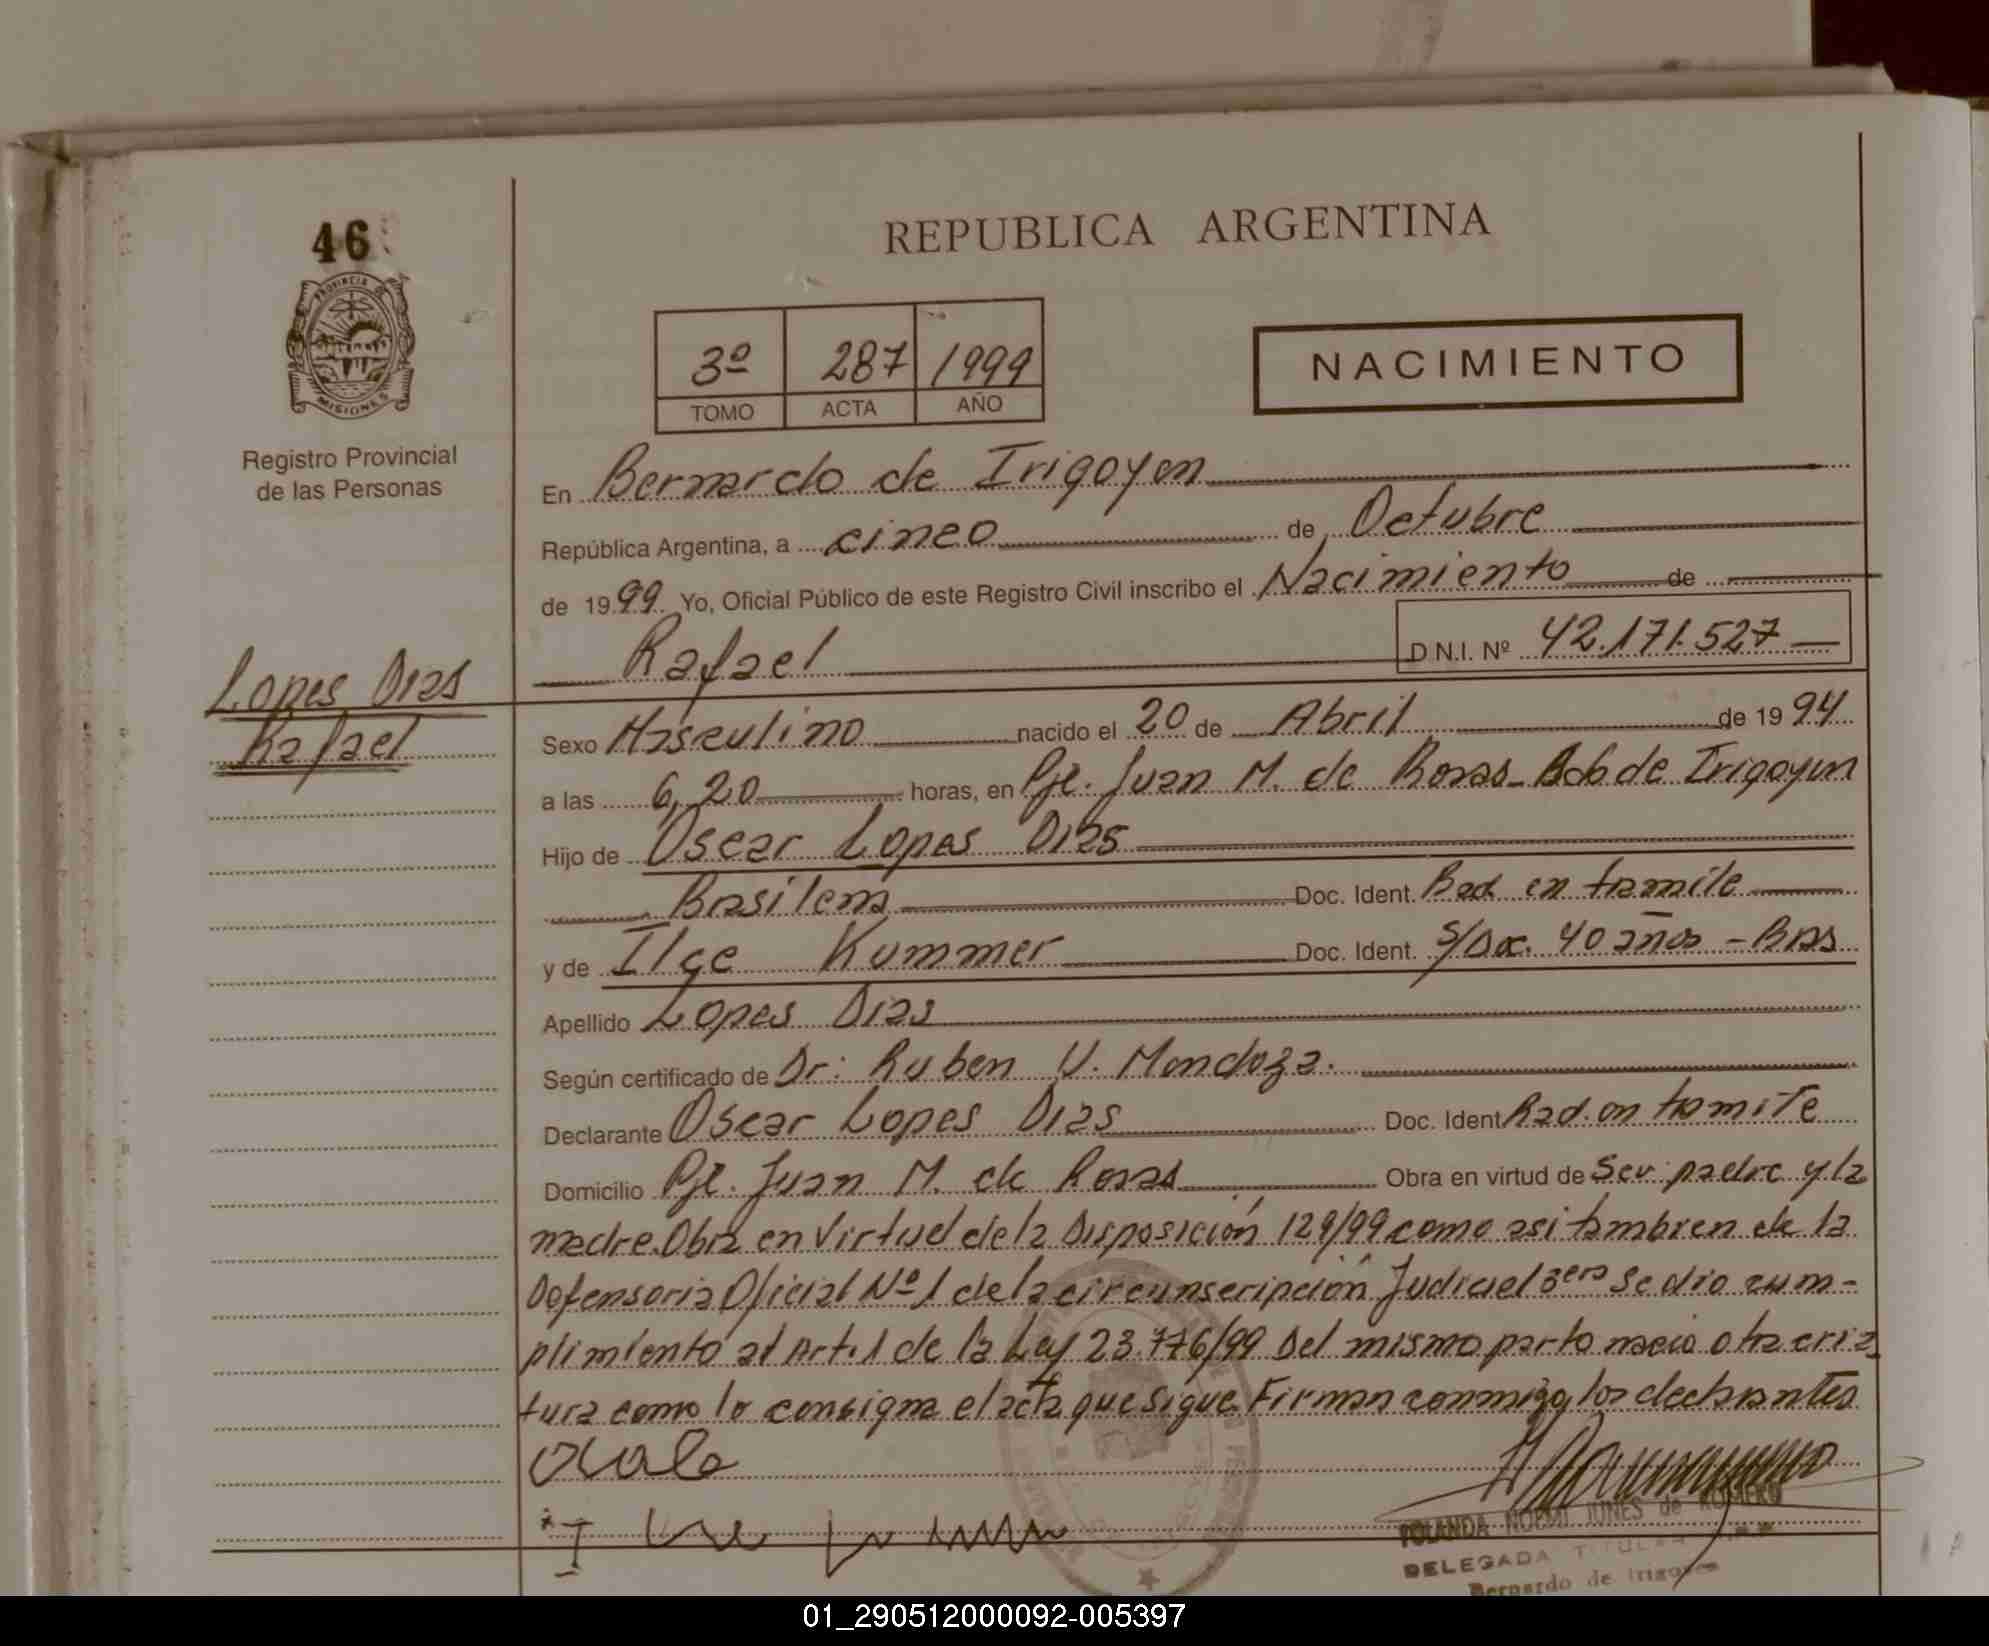 46
PROVINCIA DE
MISIONES
Registro Provincial
de las Personas
Lopes Dias
Rafael
REPUBLICA ARGENTINA
3º 287 1999
TOMO ACTA AÑO
NACIMIENTO
En Bernardo de Irigoyen
República Argentina, a cinco de Octubre
de 1999 Yo, Oficial Público de este Registro Civil inscribo el Nacimiento de
Rafael D N.I. Nº 42.171.527
Sexo Masculino nacido el 20 de Abril de 1994
a las 6,20 horas, en Pje. Juan M. de Rosas - Bdo de Irigoyen
Hijo de Oscar Lopes Dias
Brasilena Doc. Ident. Rad en tramite
y de Ilge Kummer Doc. Ident. S/Doc. 40 años - Bras
Apellido Lopes Dias
Según certificado de Dr: Ruben V. Mendoza.
Declarante Oscar Lopes Dias Doc. Ident Rad. en tramite
Domicilio Pje. Juan M. de Rosas Obra en virtud de Ser padre y la
madre. Obra en Virtud de la Disposición 129/99 como asi tambien de la
Defensoria Oficial Nº 1 de la circunscripción Judicial 3era Se dio cum-
plimiento al Art. 1 de la Ley 23.776/99 Del mismo parto nacio otra cria
tura como lo consigna el acta que sigue. Firman conmigo los declarantes
YOLANDA NOEMI de ROMERO
DELEGADA TITULAR
Bernardo de Irigoyen
01_290512000092-005397